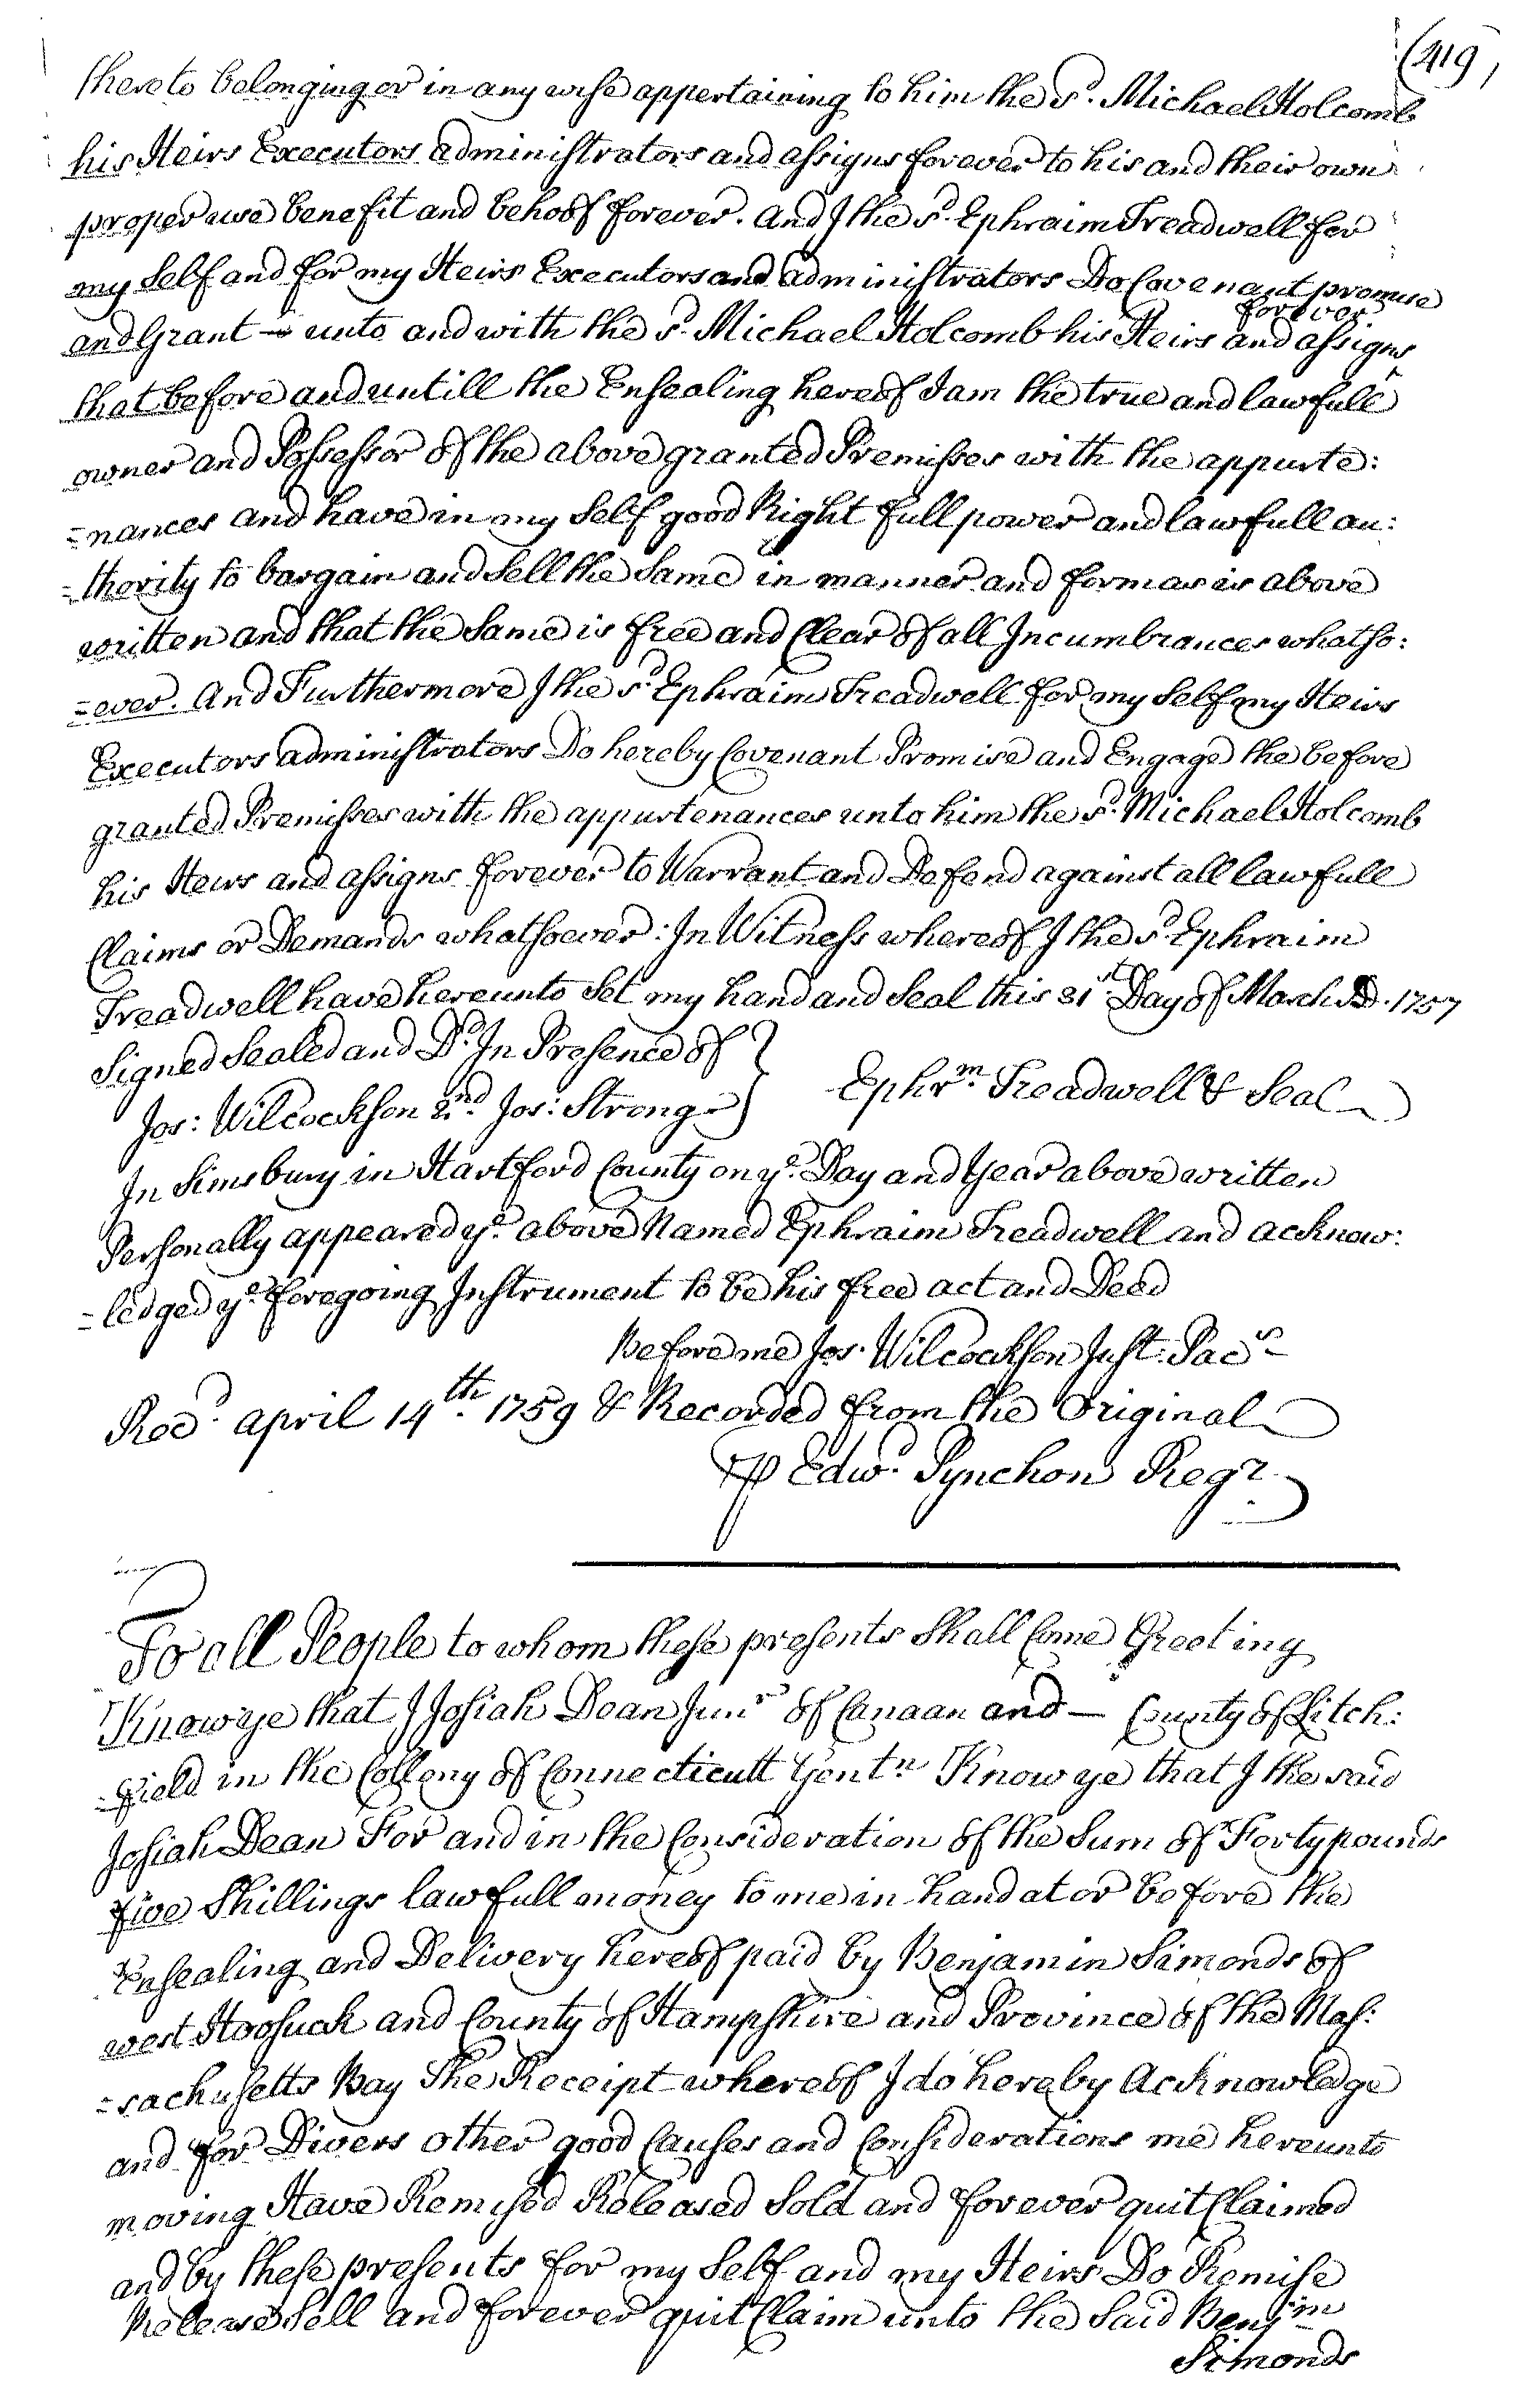 (419)
thereto belonging or in any wise appertaining to him the sd. Michael Holcomb
his Heirs Executors administrators and assigns forever to his and their own
proper use benefit and behoof forever. And I the sd. Ephraim Treadwell for
my self and for my Heirs Executors and administrators Do Covenant promise
forever
and Grant — unto and with the sd. Michael Holcomb his Heirs and assigns ‸
that before and untill the Ensealing hereof I am the true and lawfull
owner and Possessor of the above granted Premisses with the appurte:
=nances and have in my self good Right full power and lawfull au:
=thority to bargain and Sell the Same in manner and form as is above
written and that the Same is free and Clear of all Incumbrances whatso:
=ever. And Furthermore I the sd. Ephraim Treadwell for my self my Heirs
Executors administrators Do hereby Covenant Promise and Engage the before
granted Premisses with the appurtenances unto him the sd. Michael Holcomb
his Heirs and assigns forever to Warrant and Defend against all lawfull
Claims or Demands whatsoever: In Witness whereof I the sd. Ephraim
Treadwell have hereunto Set my hand and Seal this 31st. Day of March AD. 1757
Signed Sealed and Dd. In Presence of }
Jos: Wilcockson 2nd. Jos: Strong } Ephrm. Treadwell & Seal
In Simsbury in Hartford County on ye. Day and Year above written
Personally appeared ye. above Named Ephraim Treadwell and acknow:
=ledged ye. foregoing Instrument to be his free act and Deed
Before me Jos. Wilcockson Just. Pacs
Recd. april 14th. 1759 & Recorded from the Original
⅌ Edwd. Pynchon Regr.
To all People to whom these presents Shall Come Greeting
Know ye that I Josiah Dean Junr of Canaan and — County of Litch:
=field in the Collony of Connecticutt Gentn Know ye that I the said
Josiah Dean For and in the Consideration of the Sum of Forty pounds
five Shillings lawfull money to me in hand at or before the
Ensealing and Delivery hereof paid by Benjamin Simonds of
west Hoosuck and County of Hampshire and Province of the Mas:
=sachusetts Bay The Receipt whereof I do hereby Acknowledge
and for Divers other good Causes and Considerations me hereunto
moving Have Remised Released Sold and forever quit Claimed
and by these presents for my Self and my Heirs Do Remise
Release Sell and forever quit Claim unto the Said Benjm
Simonds